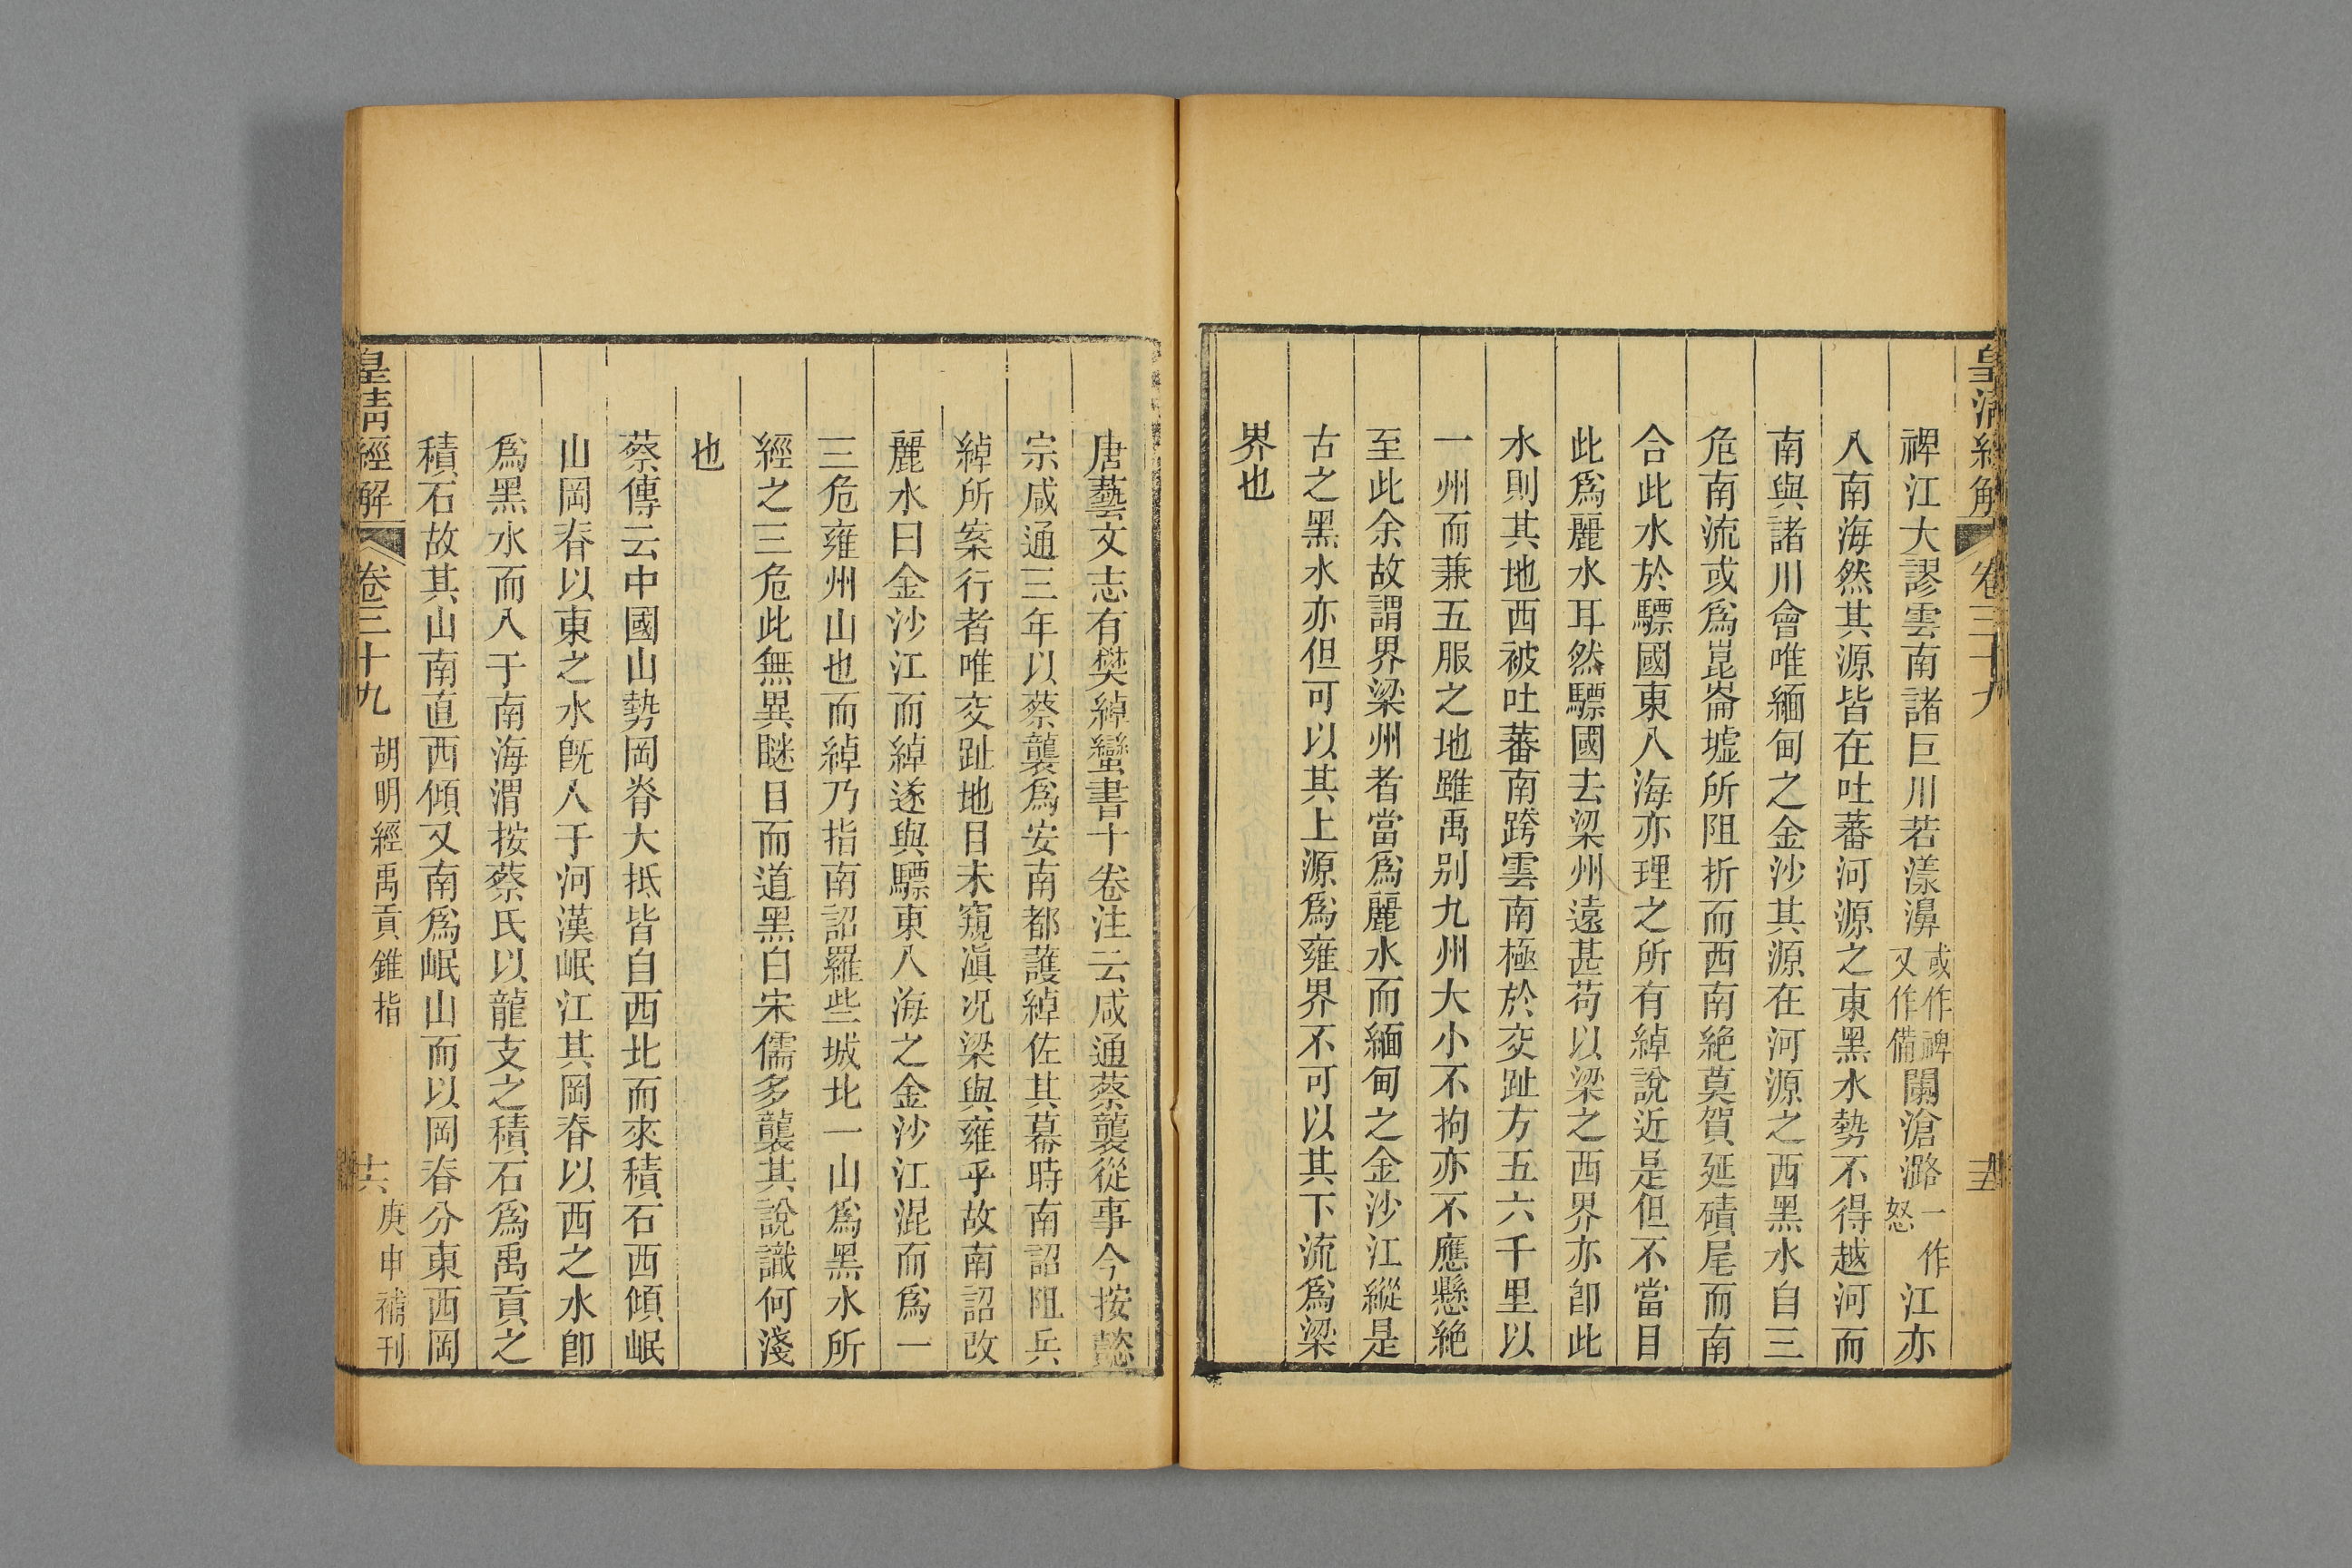 皇清經解 卷三十九 十五
禆江大謬雲南諸巨川若漾濞或作禆又作備闌滄潞一作怒江亦
入南海然其源皆在吐蕃河源之東黑水勢不得越河而
南與諸川會唯緬甸之金沙其源在河源之西黑水自三
危南流或爲崑崙墟所阻折而西南絶莫賀延磧尾而南
合此水於驃國東入海亦理之所有綽說近是但不當目
此爲麗水耳然驃國去梁州遠甚苟以梁之西界亦卽此
水則其地西被吐蕃南跨雲南極於交趾方五六千里以
一州而兼五服之地雖禹别九州大小不拘亦不應懸絶
至此余故謂界梁州者當爲麗水而緬甸之金沙江縱是
古之黑水亦但可以其上源爲雍界不可以其下流爲梁
界也
唐藝文志有樊綽蠻書十卷注云咸通蔡襲從事今按懿
宗咸通三年以蔡襲爲安南都護綽佐其幕時南詔阻兵
綽所案行者唯交趾地目未窺滇况梁與雍乎故南詔改
麗水曰金沙江而綽遂與驃東入海之金沙江混而爲一
三危雍州山也而綽乃指南詔羅些城北一山爲黑水所
經之三危此無異瞇目而道黑白宋儒多襲其說識何淺
也
蔡傳云中國山勢岡脊大抵皆自西北而來積石西傾岷
山岡脊以東之水旣入于河漢岷江其岡脊以西之水卽
爲黑水而入于南海渭按蔡氏以龍支之積石爲禹貢之
積石故其山南直西傾又南爲岷山而以岡脊分東西岡
皇清經解 卷三十九 胡明經禹貢錐指 十六 庚申補刊